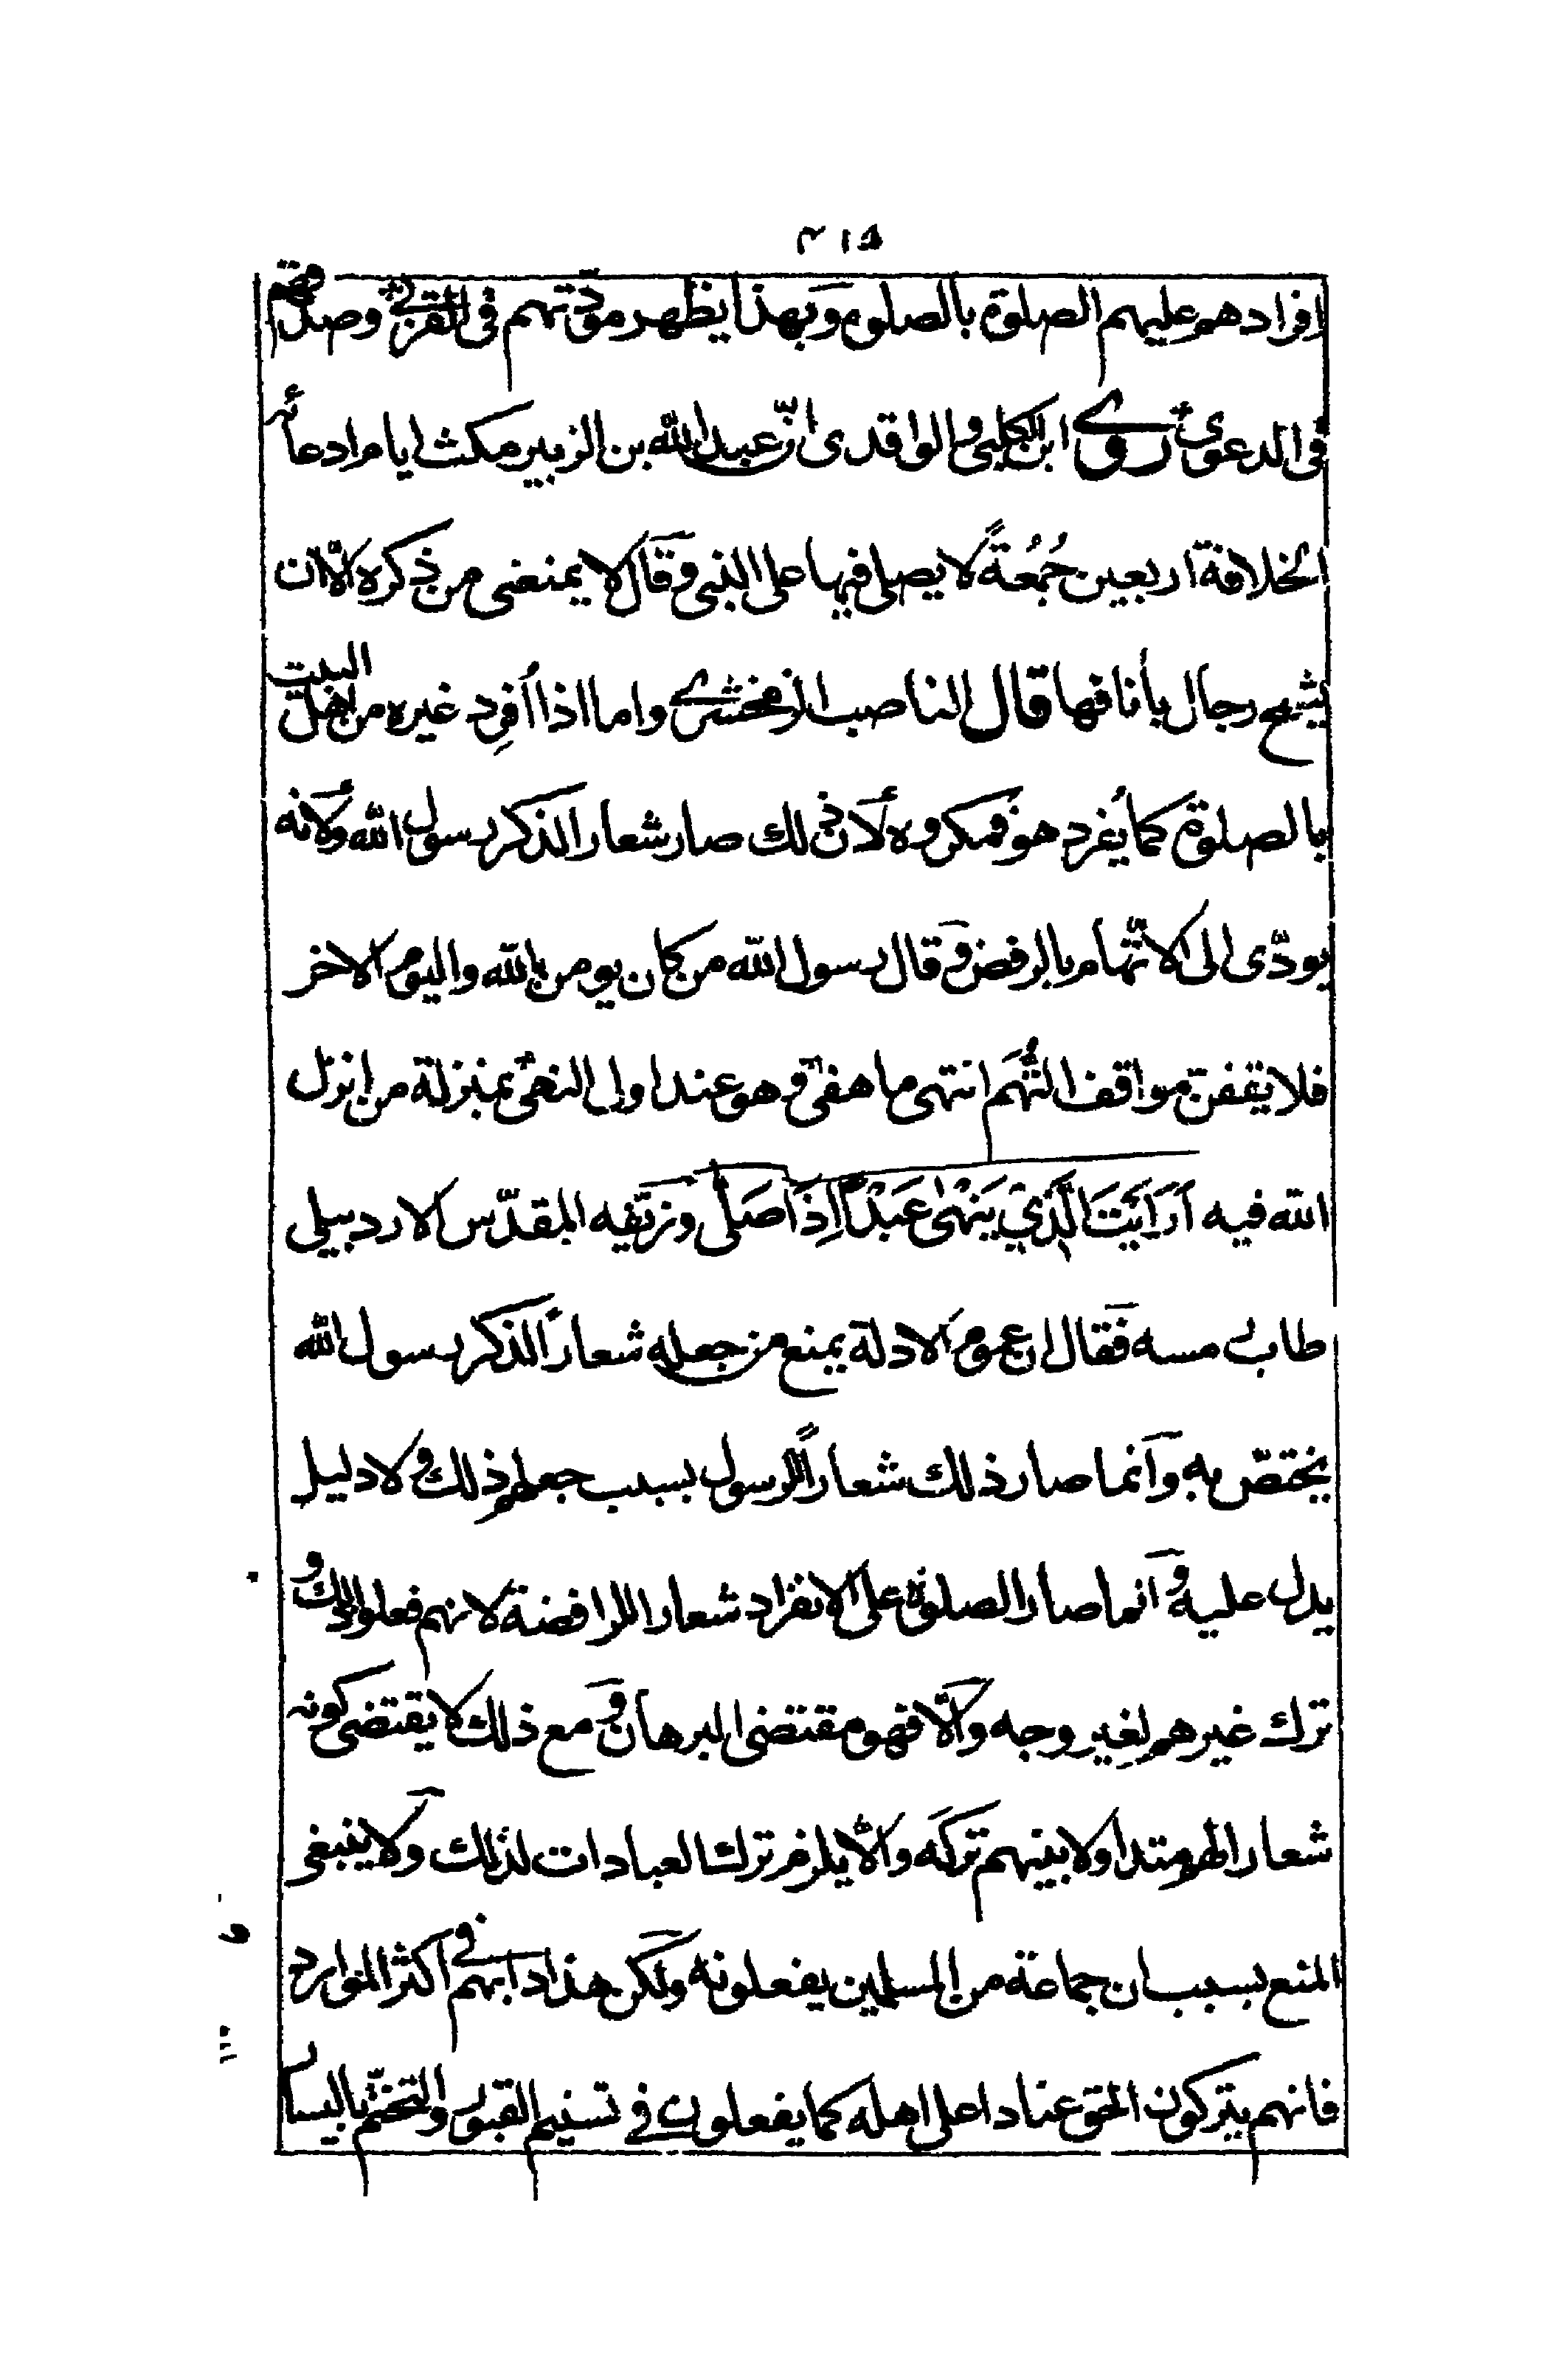 ٣١٥
افرادهم عليهم الصلوة بالصلوة وبهذا يظهر مودّتهم فى القربى وصدقهم
فى الدعوى روى ابن الكلبى والواقدى انّ عبد الله بن الزبير مكث ايام ادعائه
الخلافة اربعين جُمُعةً لا يصلى فيها على النبى وقال لا يمنعنى من ذكره الّا ان
يشمخ رجال بأنافها قال الناصب الزمخشرى واما اذا أفرِد غيره من اهل البيت
بالصلوة كما يُفرد هو فمكروه لأن ذلك صار شعار الذكر رسول الله ولأنه
يودّى الى الاتّهام بالرفض وقال رسول الله من كان يومن بالله واليوم الاخر
فلا يقفن مواقف التُّهَم انتهى ما هفى وهو عند اولى النهى بمنزلة من انزل
الله فيه أَرَأَيْتَ الَّذِي يَنْهٰى عَبْدًا إِذَا صَلّٰى وزيّفه المقدّس الاردبيلى
طاب رمسه فقال ان عموم الادلة يمنع من جعله شعار الذكر رسول الله
يختصّ به وانما صار ذلك شعاراً للرسول بسبب جعلهم ذلك ولا دليل
يدل عليه وانما صار الصلوة على الانفراد شعار اللرافضة لانهم فعلوا ذلك و
ترك غيرهم لغير وجه والّا فهو مقتضى البرهان ومع ذلك لا يقتضى كونه
شعار الهم متداولا بينهم تركه والّا يلزم ترك العبادات لذلك ولا ينبغى
المنع بسبب ان جماعة من المسلمين يفعلونه ولكن هذا دابهم فى اكثر الموارد
فانهم يتركون الحق عنادا على اهله كما يفعلون فى تسنيم القبور والتختّم باليسار